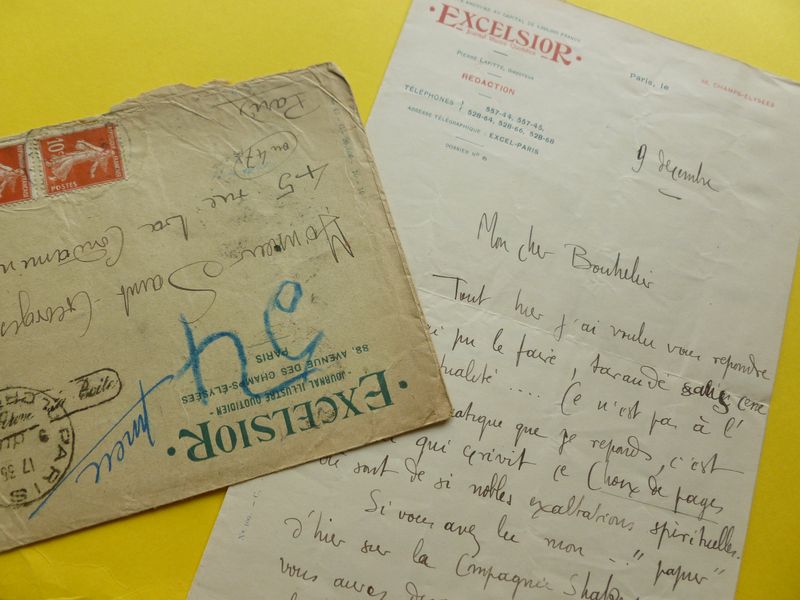 EXCELSIOR
Journal Illustré Quotidien
PIERRE LAFITTE, DIRECTEUR
RÉDACTION
TÉLÉPHONES
557-44, 557-45,
528-64, 528-66, 528-68
ADRESSE TÉLÉGRAPHIQUE : EXCEL-PARIS
DOSSIER N° 8
Paris, le
88, CHAMPS-ELYSÉES
9 décembre
Mon cher Bouhélier
Tout hier j'ai voulu vous repondre
pu le faire, taraudé sans cesse
.... Ce n'est pas à l'
que je reponds, c'est
qui écrivit ce Choix de pages
où sont de si nobles exaltations spirituelles.
Si vous avez lu mon .. "papier"
d'hier sur la Compagnie
vous
Paris
45 rue La
Monsieur Saint-Georges
10c
POSTES
34
EXCELSIOR
JOURNAL ILLUSTRÉ QUOTIDIEN
88, AVENUE DES CHAMPS-ELYSÉES
PARIS
PARIS
17 35